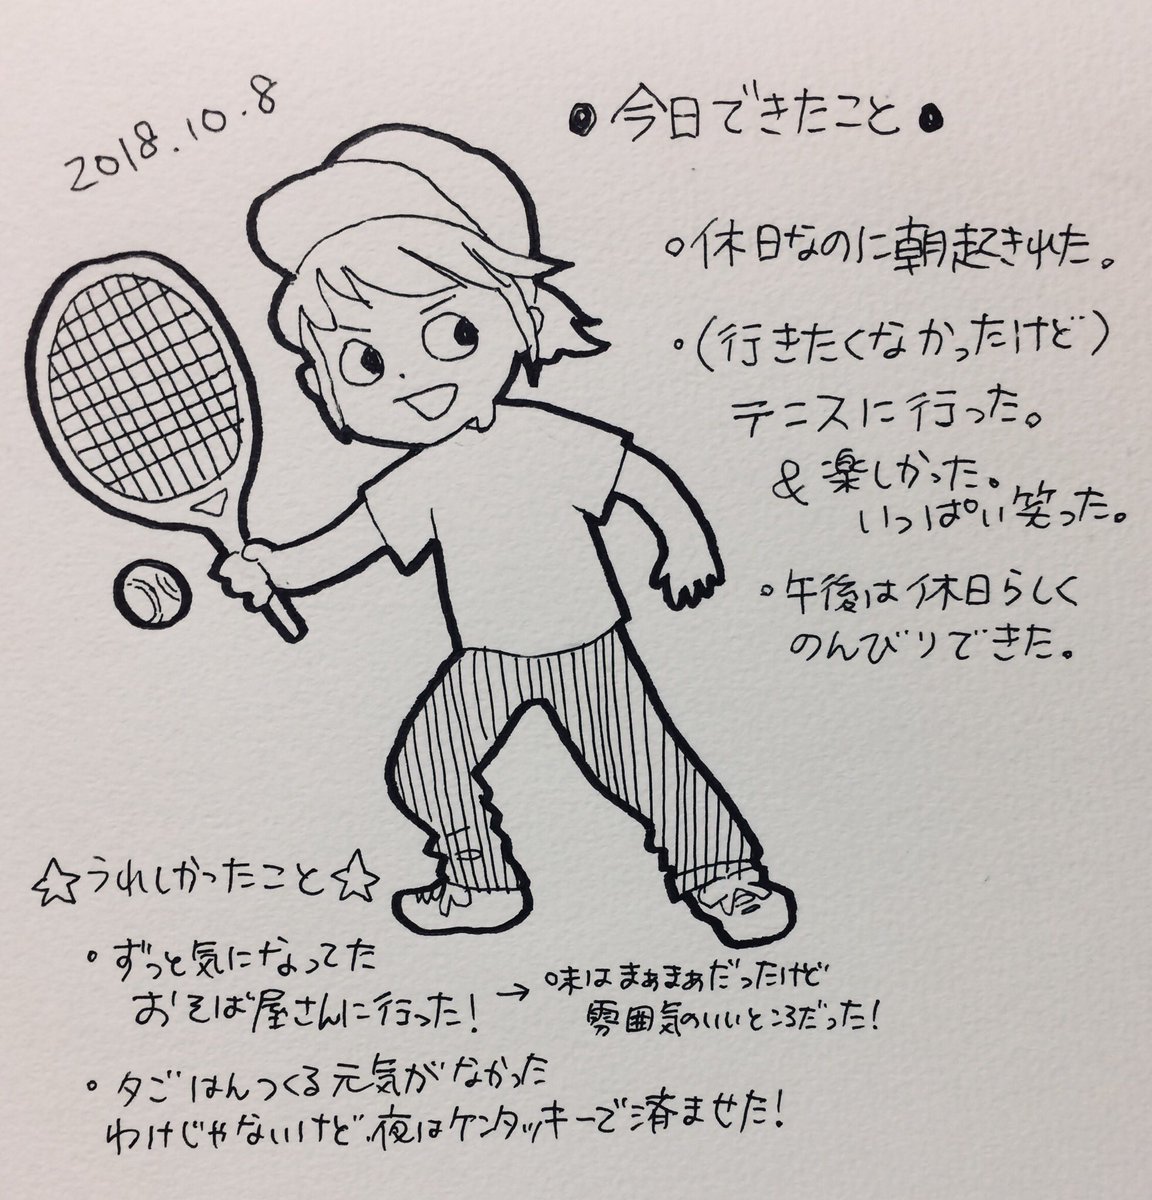 2018.10.8
今日できたこと
休日なのに朝起きれた。
(行きたくなかったけど)
テニスに行った。
& 楽しかった。
いっぱい笑った。
午後は休日らしく
のんびりできた。
☆うれしかったこと☆
ずっと気になってた
おそば屋さんに行った! → 味はまぁまぁだったけど
雰囲気のいいところだった!
夕ごはんつくる元気がなかった
わけじゃないけど、夜はケンタッキーで済ませた!